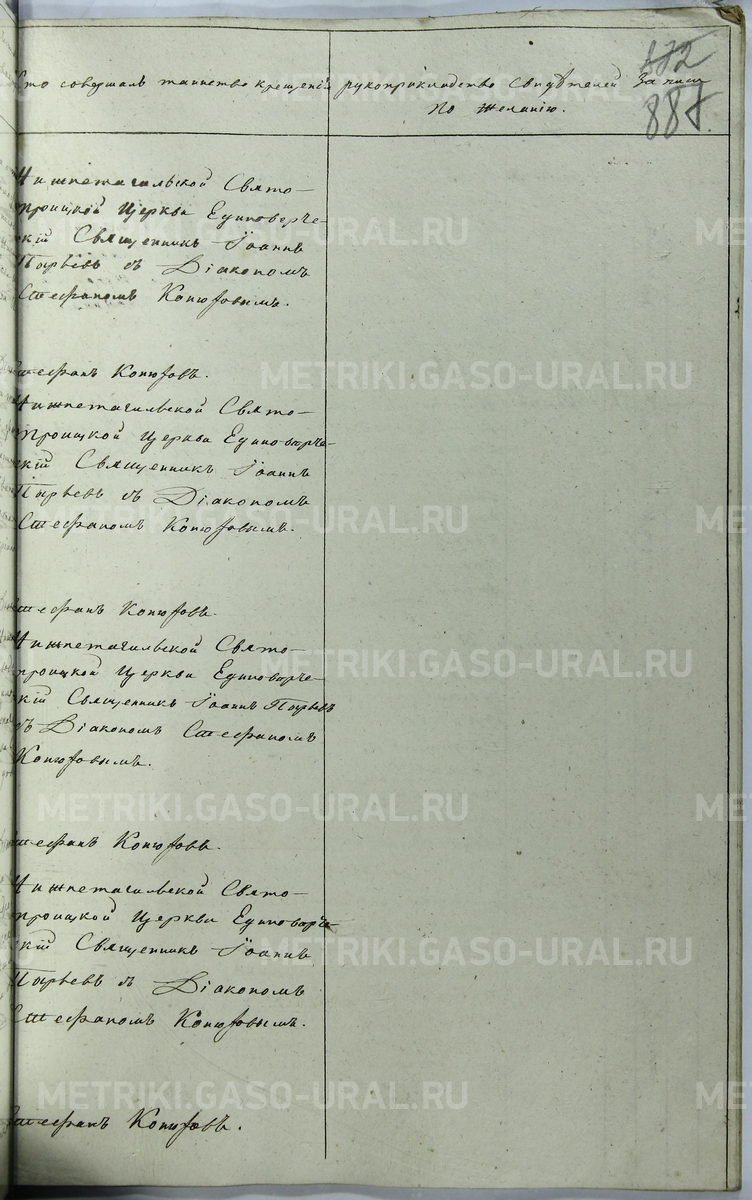 172
887.
Кто совершалъ таинство крещенія
рукоприкладство свидѣтелей за[писи]
по желанію.
Нижнетагильской Свято-
троицкой Церкви Единоверче-
скій Священникъ Іоаннъ
съ Діакономъ
Стефаномъ Конюховымъ.
Стефанъ Конюховъ.
Нижнетагильской Свято-
троицкой Церкви Единоверче-
скій Священникъ Іоаннъ
съ Діакономъ
Стефаномъ Конюховымъ.
Стефанъ Конюховъ.
Нижнетагильской Свято-
троицкой Церкви Единоверче-
скій Священникъ Іоаннъ
съ Діакономъ Стефаномъ
Конюховымъ.
Стефанъ Конюховъ.
Нижнетагильской Свято-
троицкой Церкви Единоверче-
скій Священникъ Іоаннъ
съ Діакономъ
Стефаномъ Конюховымъ.
Стефанъ Конюховъ.
METRIKI.GASO-URAL.RU